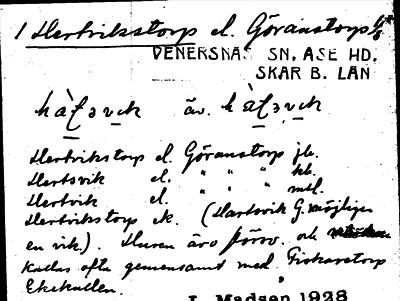 1 Hertrikstorp el. Göranstorp
VENERSNÄS SN, ÅSE HD.
SKARB. LÄN
äv.
Hertrikstorp el. Göranstorp jb.
Hertsvik el. " " " kb.
Hertvik el. " " " mtl.
Hertrikstorp ek. (Hartsvik G. möjligen
en vik.). Husen äro försv. och
kallas ofta gemensamt med Fiskaretorp
Ekekullen.
L. Madsen 1928